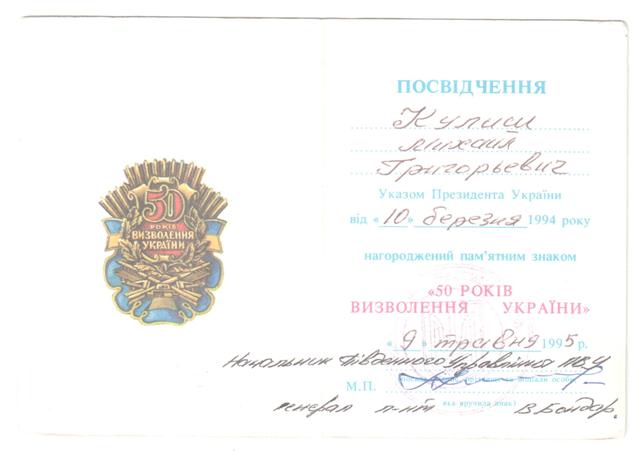 50
РОКІВ
ВИЗВОЛЕННЯ
УКРАЇНИ
ПОСВІДЧЕННЯ
Кулиш
Михаил
Григорьевич
Указом Президента України
від «10» березня 1994 року
нагороджений пам'ятним знаком
«50 РОКІВ
ВИЗВОЛЕННЯ УКРАЇНИ»
«9» травня 1995 р.
Начальник Південного Управління
М.П.
яка вручила знак)
генерал л-нт В. Бондар.